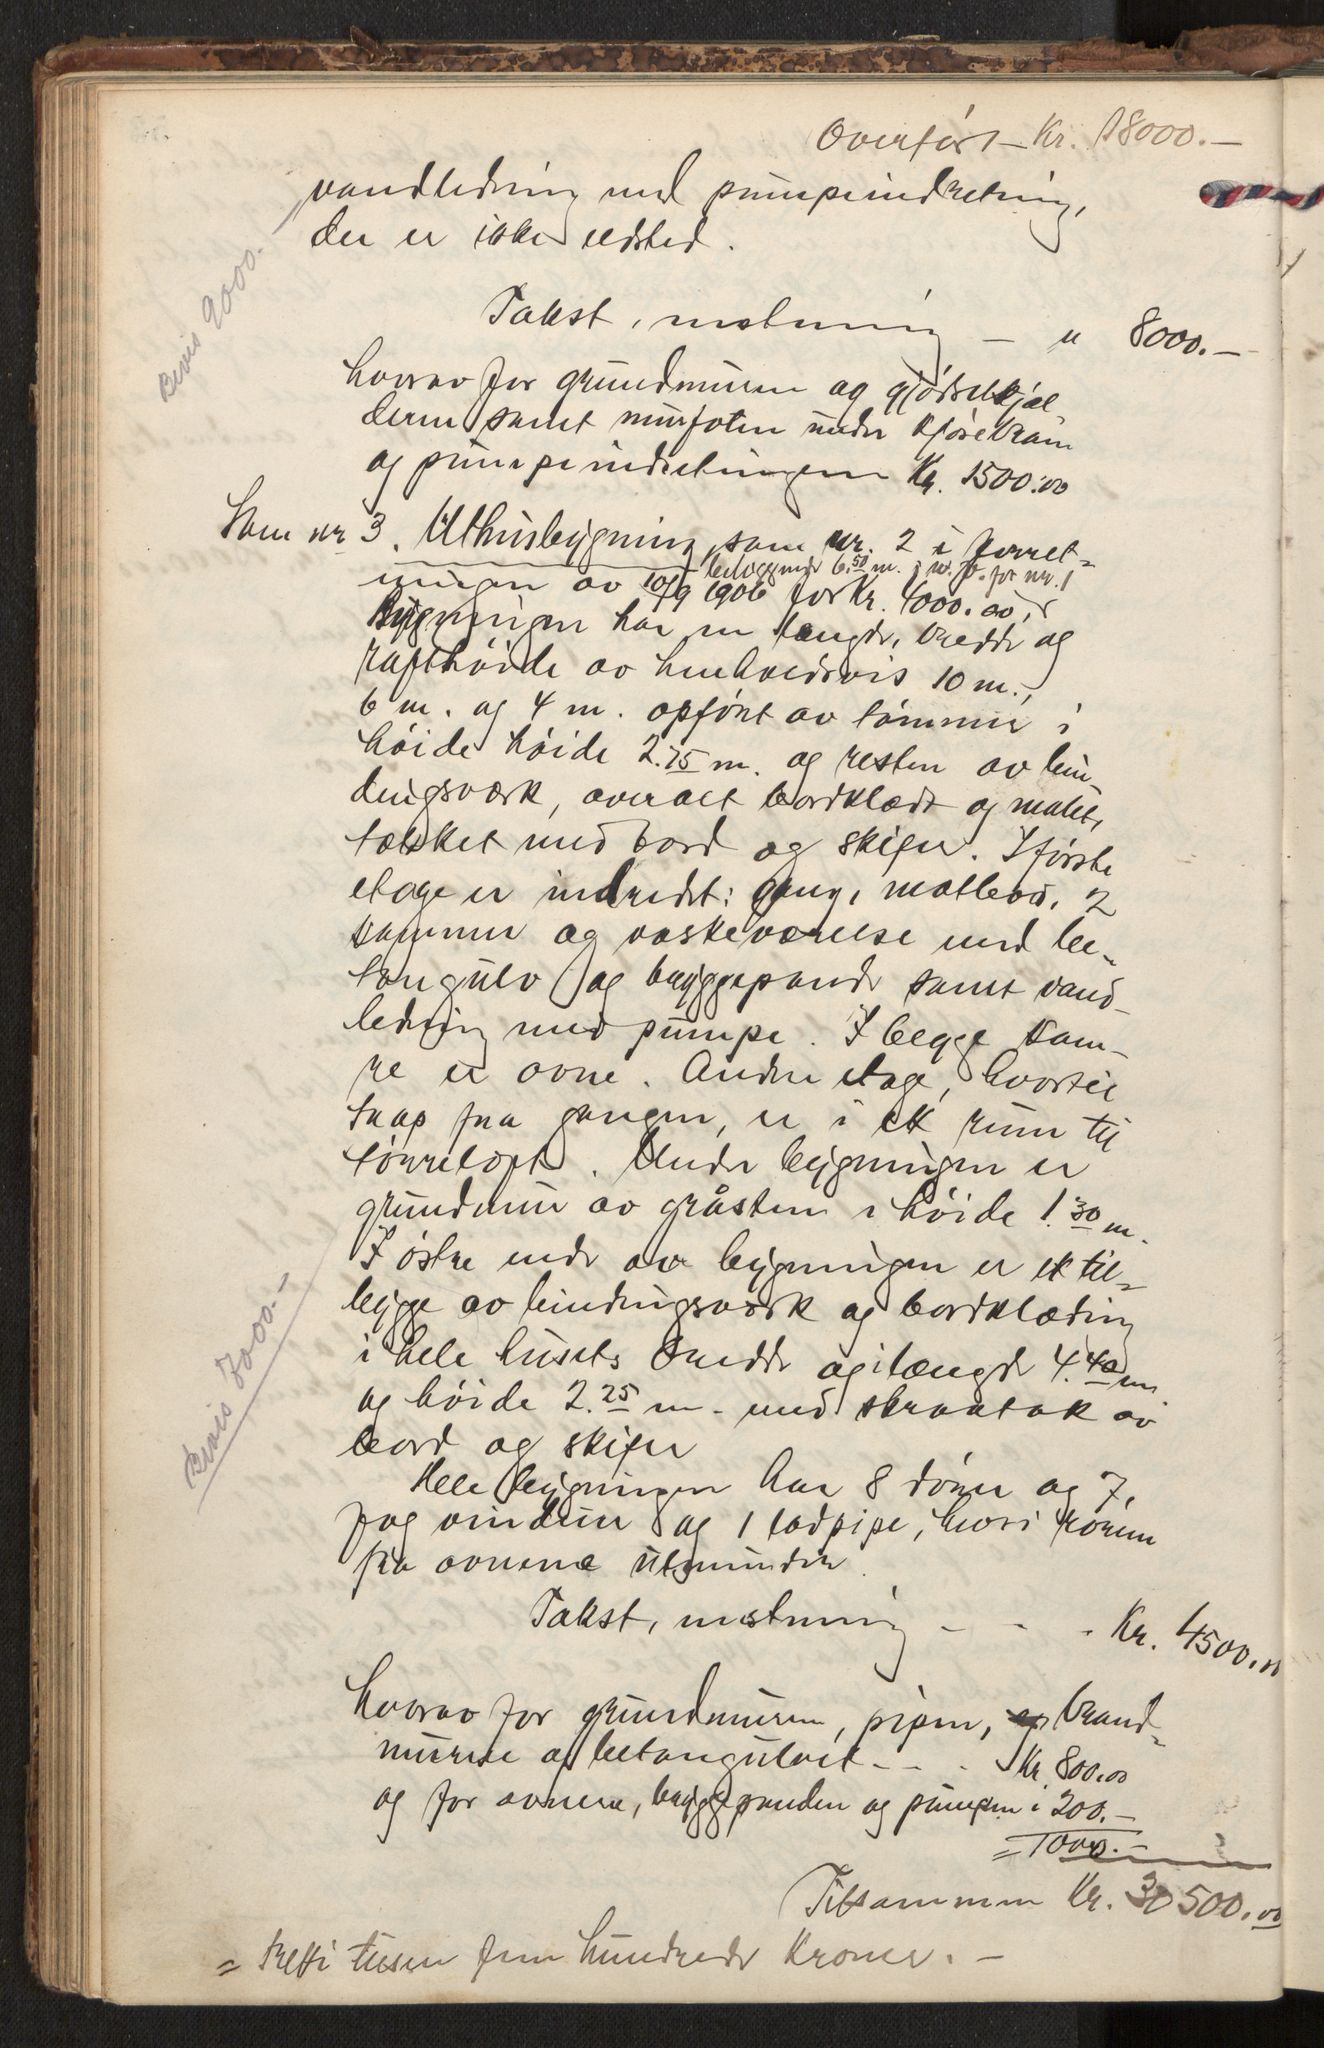 Overført – Kr. 18000.–
vandledning med pumpeindretning,
der er ikke ildsted.
Bevis 9000.–
Takst, instning – " 8000.–
hvorav for grundmuren og gjødselkjæl-
deren samt murfoten under kjørebram
og pumpeindretningen Kr. 1500.00
Som nr 3. Uthusbygning, som nr. 2 i forret-
beliggende 6.50 m. i n. ø. for nr. 1
ningen av 10/9 1906 for Kr. 4000.00,
Bygningen har en længde, bredde og
rafthøide av henholdsvis 10 m.,
6 m. og 4 m. opført av tømmer i
høide høide 2.75 m. og resten av bin
dingsværk, overalt bordklædt og malet,
tækket med bord og skifer. I første
etage er indredet: gang, matbod, 2
kammer og vaskeværelse med be-
tongulv og bryggepande samt vand-
ledning med pumpe. I begge kam-
re er ovne. Anden etage, hvortil
trap fra gangen, er i et rum til
tørreloft. Under bygningen er
grundmur av gråsten i høide 1.30 m.
I østre ende av bygningen er et til-
bygge av bindingsværk og bordklædning
i hele husets bredde og i længde 4.40 m
og høide 2.25 m. med skraatak av
bord og skifer
Bevis 7000.–
Hele bygningen har 8 dører og 7,
fag vinduer og 1 lodpipe, hvori rørene
fra ovnene utmunder.
Takst, instning - - - Kr. 4500.00
hvorav for grundmuren, pipen, brand-
murene og betongulvet - - - Kr. 800.00
og for ovnene, bryggepanden og pumpen i 200.–
= 1000.–
Tilsammen Kr. 30500.00
= tretti tusen fem hundrede Kroner. –